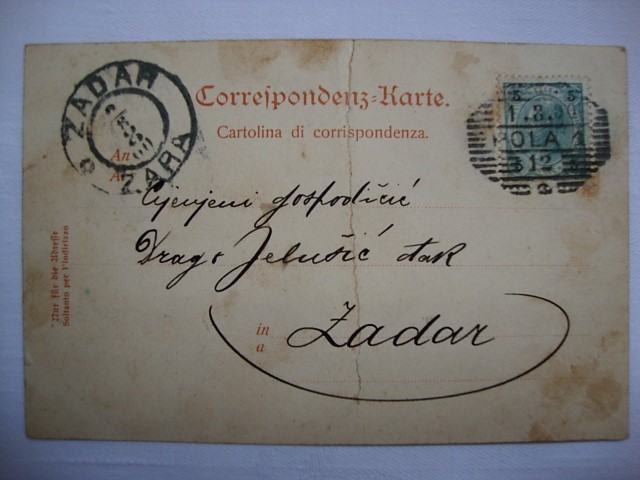 ZADAR
ZARA
Correspondenz=Karte.
Cartolina di corrispondenza.
5 5
1.8.
POLA 1
12
An
A
Cijenjeni gospodičić
Drago Jelušić đak
in
a
Zadar
Nur für die Adresse
Soltanto per l'indirizzo